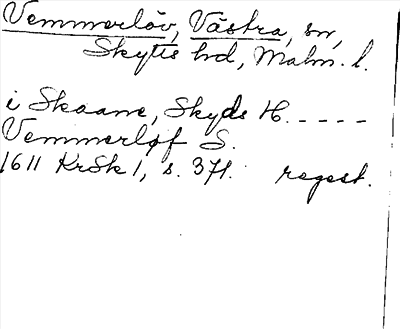 Vemmerlöv, Västra, sn,
Skytts hd, Malm. l.
i Skaane, Skyds H. - - - - -
Vemmerløf S.
1611 KrSk 1, s. 371. regest.